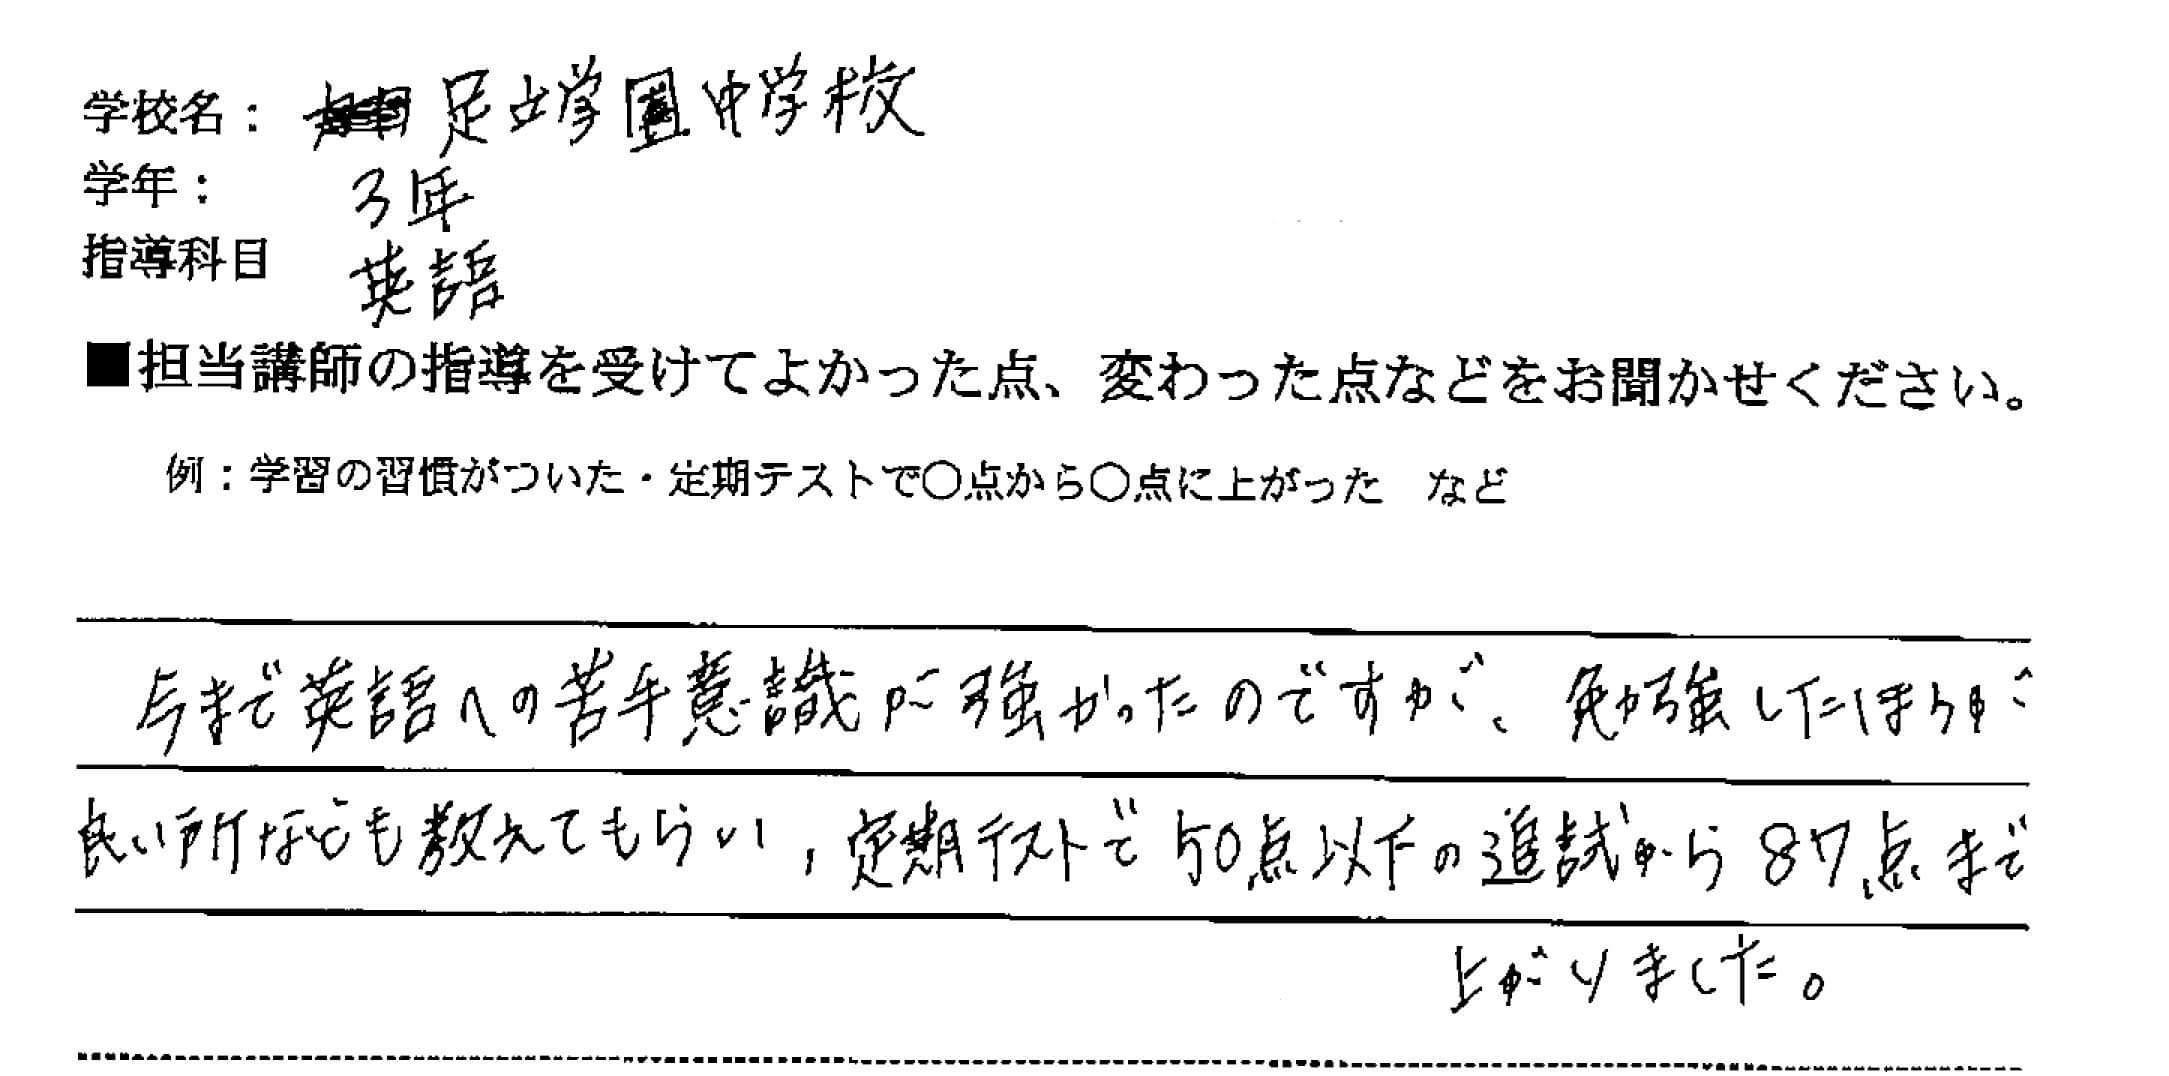 学校名： 足立学園中学校
学年： 3年
指導科目 英語
■担当講師の指導を受けてよかった点、変わった点などをお聞かせください。
例：学習の習慣がついた・定期テストで〇点から〇点に上がった　など
今まで英語への苦手意識が強かったのですが、勉強したほうが
良い所なども教えてもらい，定期テストで50点以下の追試から87点まで
上がりました。